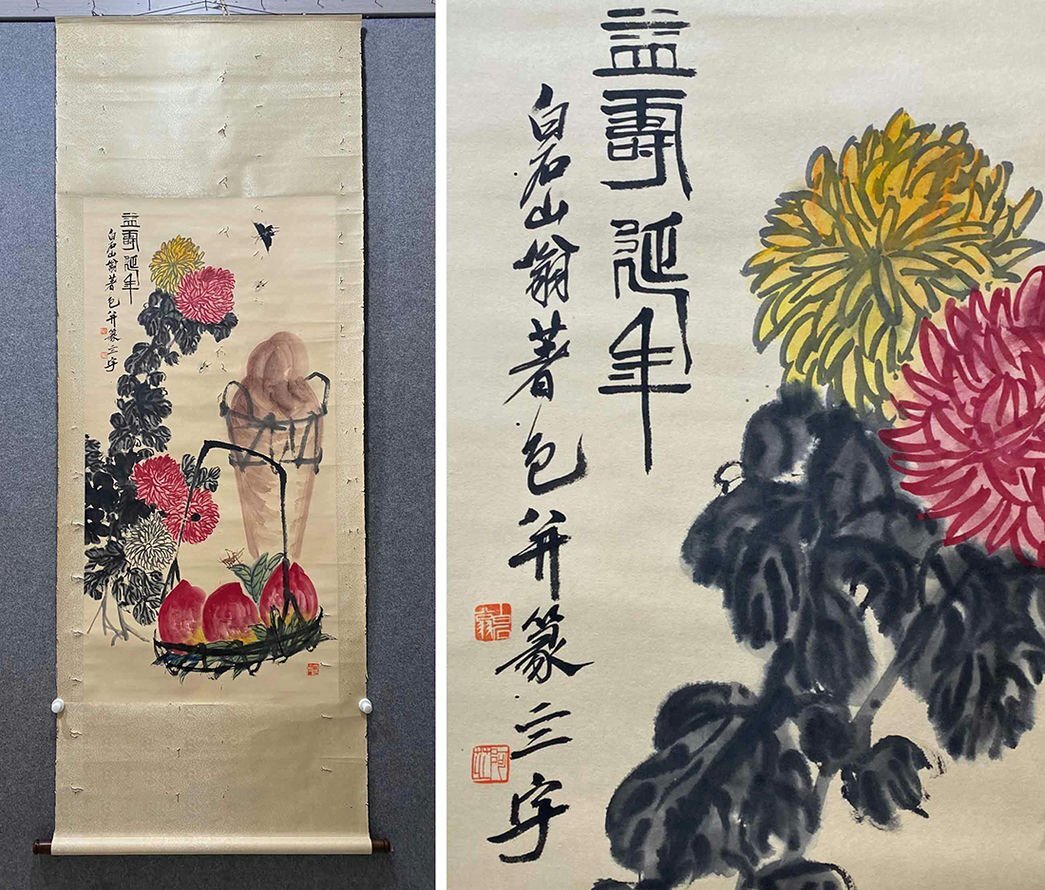 益壽延年
白石山翁著色并篆三字
益壽延年
白石山翁著色并篆三字
阿芝